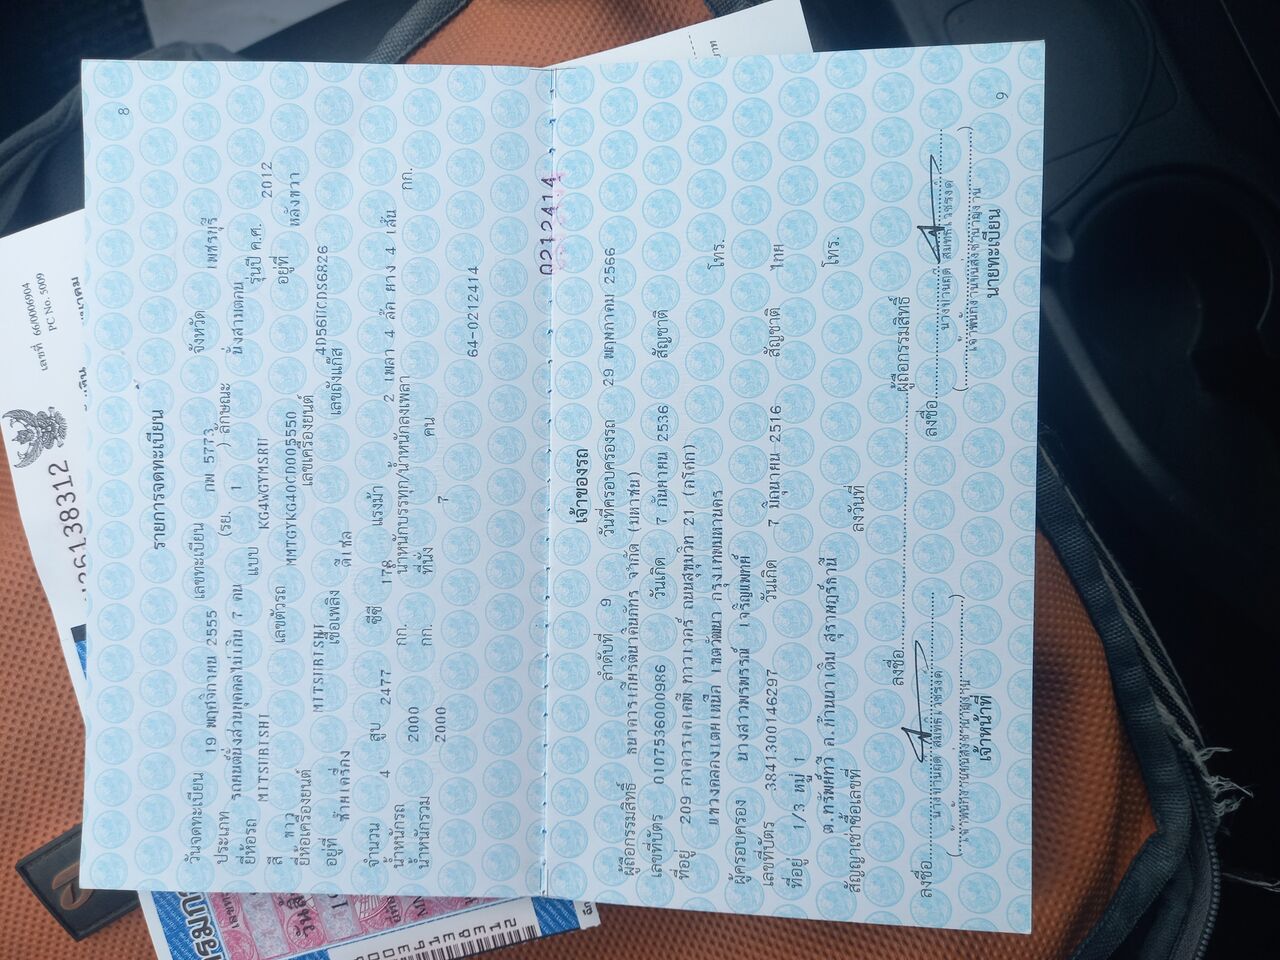 8
รายการจดทะเบียน
วันจดทะเบียน 19 พฤศจิกายน 2555 เลขทะเบียน กพ 5773 จังหวัด เพชรบุรี
ประเภท รถยนต์นั่งส่วนบุคคลไม่เกิน 7 คน (รย. 1 ) ลักษณะ นั่งสามตอน
ยี่ห้อรถ MITSUBISHI แบบ KG4WGYMSRH รุ่นปี ค.ศ. 2012
สี ขาว เลขตัวรถ MMTGYKG40CD005550 อยู่ที่ หลังขวา
ยี่ห้อเครื่องยนต์ MITSUBISHI เลขเครื่องยนต์ 4D56UCDS6826
อยู่ที่ ซ้ายเครื่อง เชื้อเพลิง ดีเซล เลขถังแก๊ส
จำนวน 4 สูบ 2477 ซีซี 178 แรงม้า 2 เพลา 4 ล้อ ยาง 4 เส้น
น้ำหนักรถ 2000 กก. น้ำหนักบรรทุก/น้ำหนักลงเพลา กก.
น้ำหนักรวม 2000 กก. ที่นั่ง 7 คน
64-0212414
0212414
เจ้าของรถ
ลำดับที่ 9 วันที่ครอบครองรถ 29 พฤษภาคม 2566
ผู้ถือกรรมสิทธิ์ ธนาคารเกียรตินาคินภัทร จำกัด (มหาชน)
เลขที่บัตร 0107536000986 วันเกิด 7 กันยายน 2536 สัญชาติ
ที่อยู่ 209 อาคารเคเคพี ทาวเวอร์ ถนนสุขุมวิท 21 (อโศก)
แขวงคลองเตยเหนือ เขตวัฒนา กรุงเทพมหานคร โทร.
ผู้ครอบครอง นางสาวพรพรรณ์ เจริญแพทย์
เลขที่บัตร 3841300146297 วันเกิด 7 มิถุนายน 2516 สัญชาติ ไทย
ที่อยู่ 1/3 หมู่ 1
ต.ทรัพย์ทวี อ.บ้านนาเดิม สุราษฎร์ธานี โทร.
สัญญาเช่าซื้อเลขที่ ลงวันที่
ลงชื่อ ผู้ถือกรรมสิทธิ์
ลงชื่อ ลงชื่อ
เจ้าหน้าที่ นายทะเบียน
9
เลขที่ 66/0006904
PC No. 5009
บาท